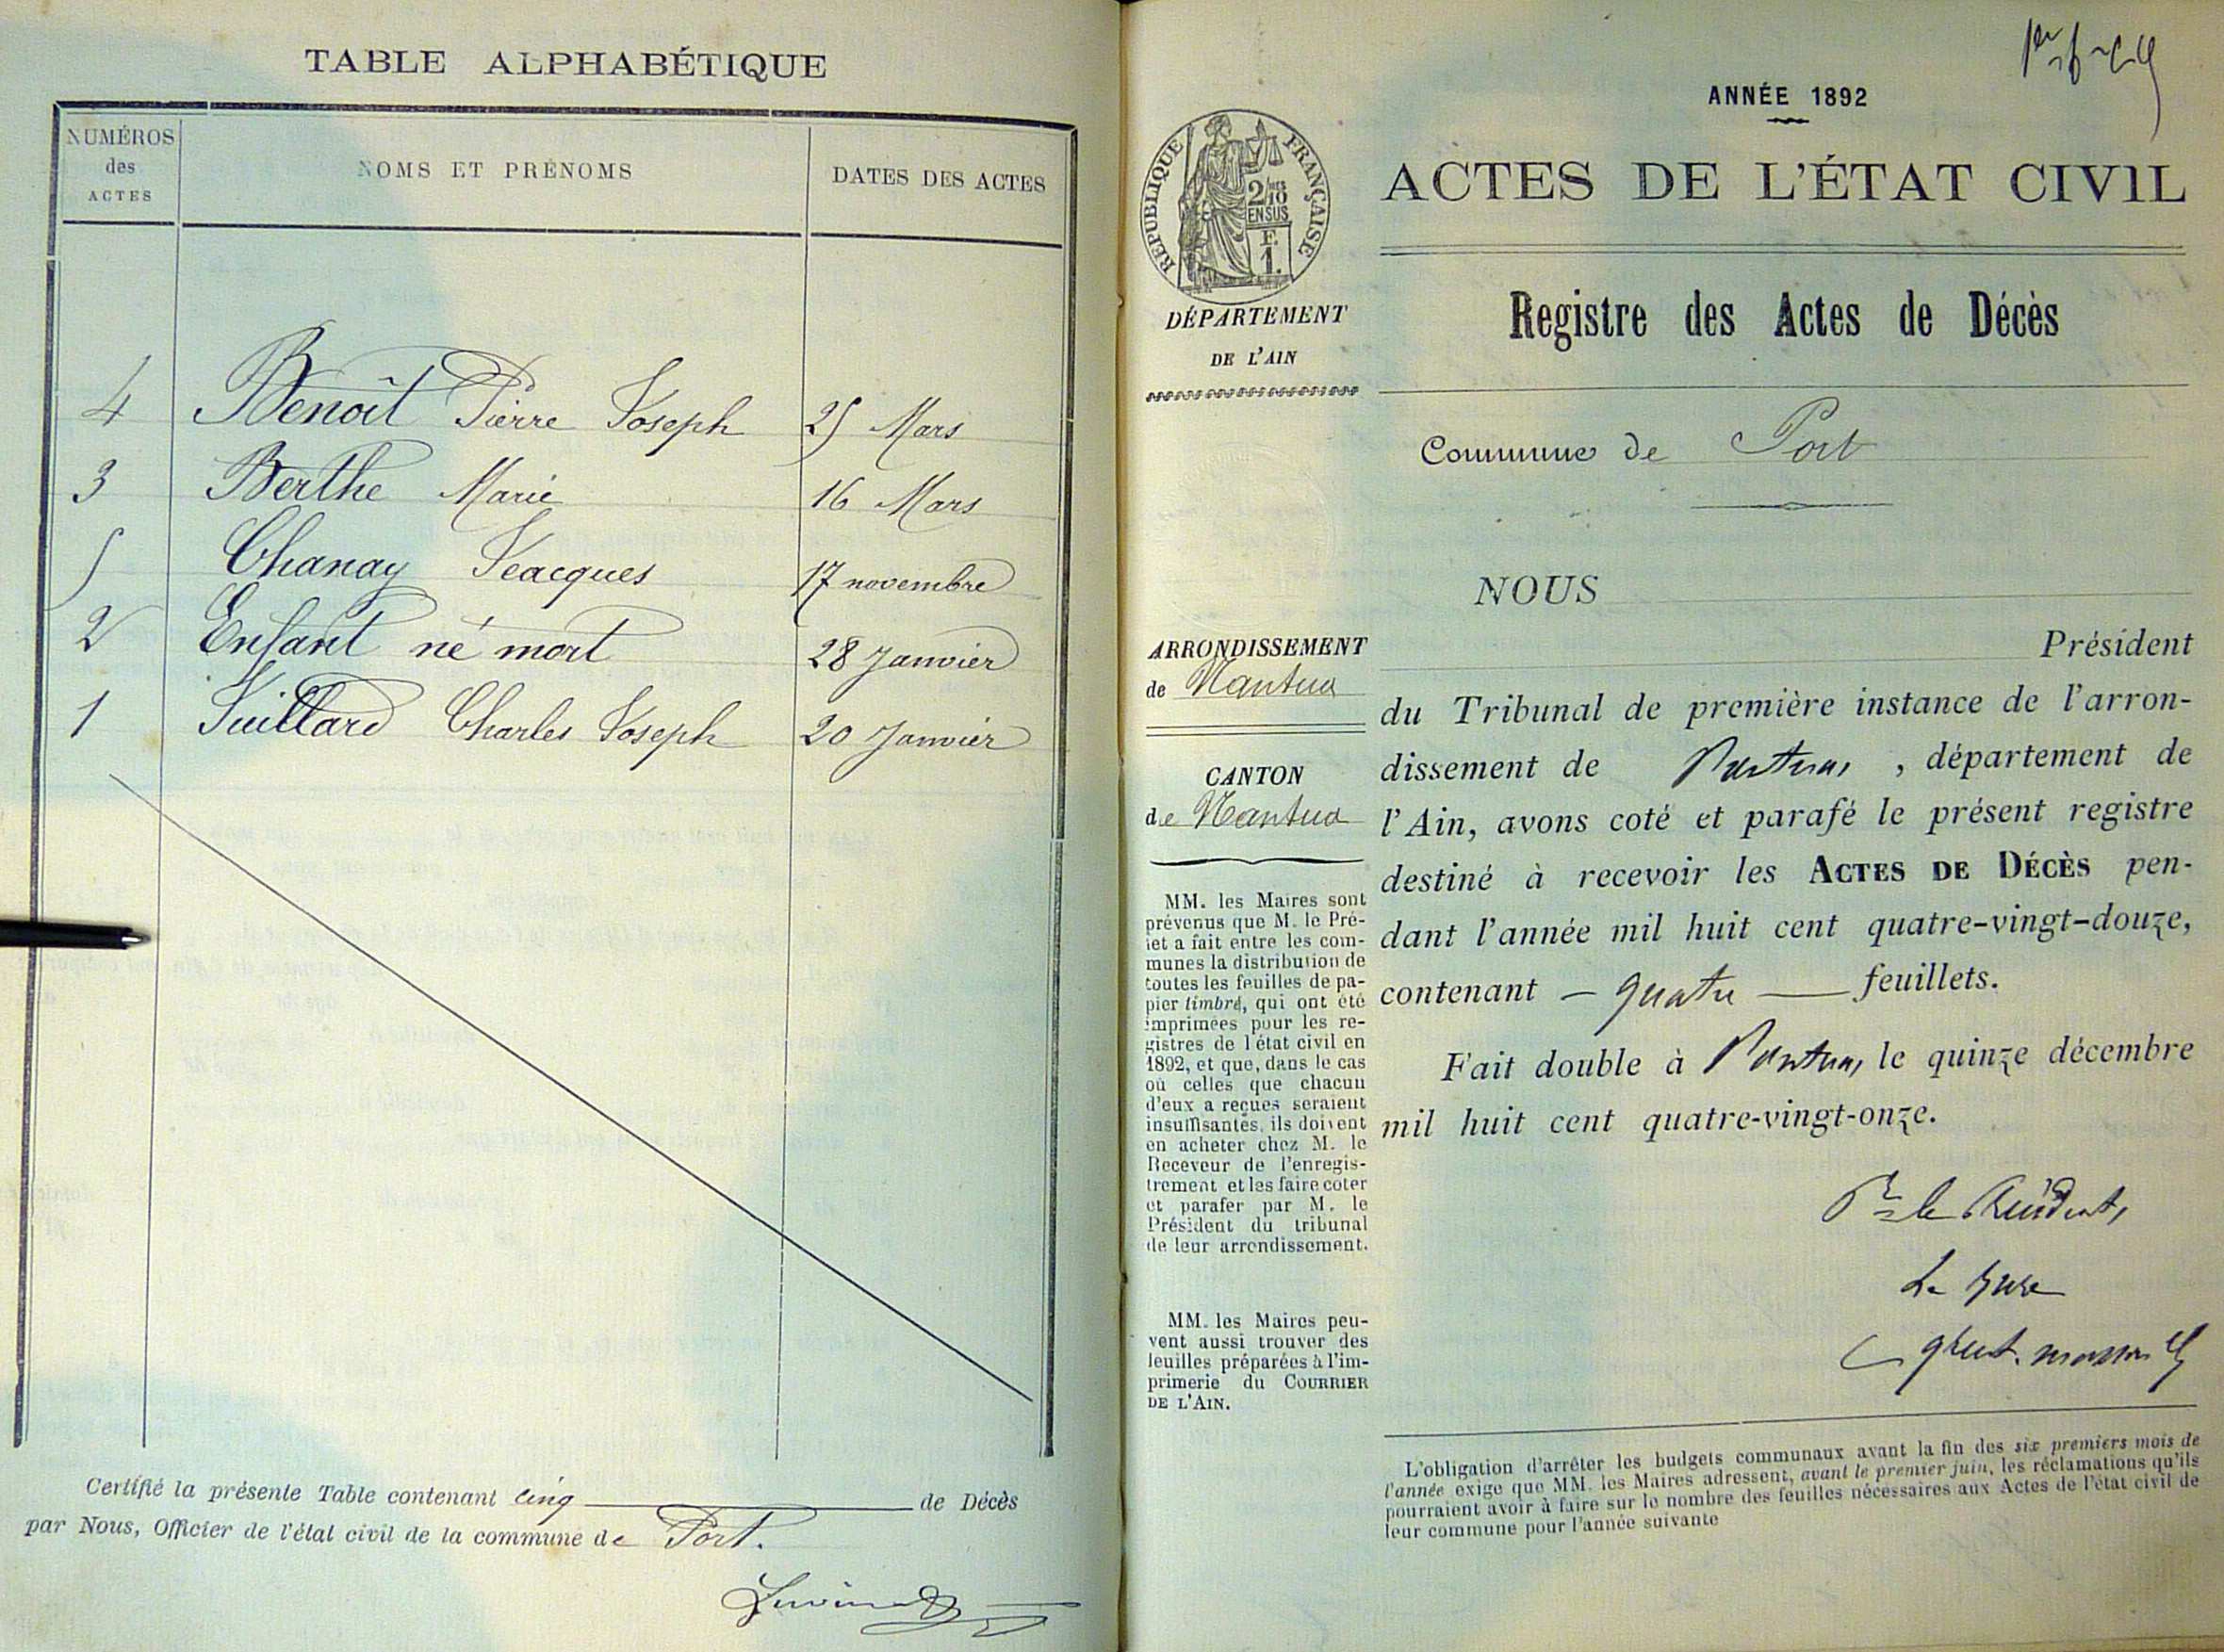 TABLE ALPHABÉTIQUE
NUMÉROS
des
ACTES
NOMS ET PRÉNOMS
DATES DES ACTES
4 Benoît Pierre Joseph 25 Mars
3 Berthe Marie 16 Mars
5 Chanay Jeacques 17 novembre
2 Enfant né mort 28 Janvier
1 Juillard Charles Joseph 20 Janvier
Certifié la présente Table contenant cinq de Décès
par Nous, Officier de l'état civil de la commune de Port.
1er f
ANNÉE 1892
RÉPUBLIQUE FRANÇAISE
2/10
EN SUS
F.
1.
ACTES DE L'ÉTAT CIVIL
DÉPARTEMENT
DE L'AIN
Registre des Actes de Décès
Commune de Port
NOUS
Président
ARRONDISSEMENT
de Nantua
CANTON
de Nantua
du Tribunal de première instance de l'arron-
dissement de Nantua, département de
l'Ain, avons coté et parafé le présent registre
destiné à recevoir les ACTES DE DÉCÈS pen-
dant l'année mil huit cent quatre-vingt-douze,
contenant — quatre — feuillets.
Fait double à Nantua, le quinze décembre
mil huit cent quatre-vingt-onze.
Pr le Président,
Le Juge
MM. les Maires sont
prévenus que M. le Pré-
fet a fait entre les com-
munes la distribution de
toutes les feuilles de pa-
pier timbré, qui ont été
imprimées pour les re-
gistres de l'état civil en
1892, et que, dans le cas
où celles que chacun
d'eux a reçues seraient
insuffisantes, ils doivent
en acheter chez M. le
Receveur de l'enregis-
trement et les faire coter
et parafer par M. le
Président du tribunal
de leur arrondissement.
MM. les Maires peu-
vent aussi trouver des
feuilles préparées à l'im-
primerie du COURRIER
DE L'AIN.
L'obligation d'arrêter les budgets communaux avant la fin des six premiers mois de
l'année exige que MM. les Maires adressent, avant le premier juin, les réclamations qu'ils
pourraient avoir à faire sur le nombre des feuilles nécessaires aux Actes de l'état civil de
leur commune pour l'année suivante